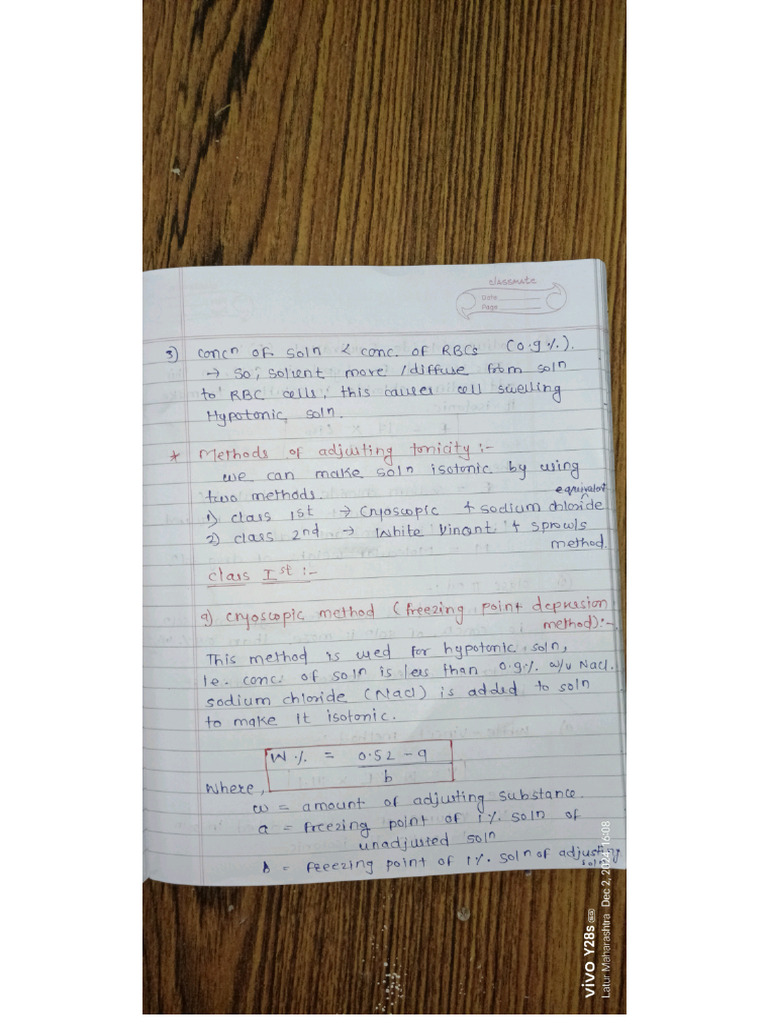 classmate
Date
Page
3) concn of soln < conc. of RBCs (0.9%).
→ so, solvent move / diffuse from soln
to RBC cells, this causes cell swelling
Hypotonic soln.
* Methods of adjusting tonicity :-
we can make soln isotonic by using
two methods.
equivalent
1) class 1st → Cryoscopic + sodium chloride
2) class 2nd → White Vincent + sprowls
method.
class Ist :-
a) cryoscopic method (freezing point depression
method):-
This method is used for hypotonic soln,
i.e. conc. of soln is less than 0.9% w/v Nacl.
sodium chloride (Nacl) is added to soln
to make it isotonic.
W% = 0.52 - a
b
Where,
w = amount of adjusting substance.
a = freezing point of 1% soln of
unadjusted soln
b = freezing point of 1% soln of adjusting
soln
vivo Y28s 5G
Latur Maharashtra Dec 2, 2024, 16:08